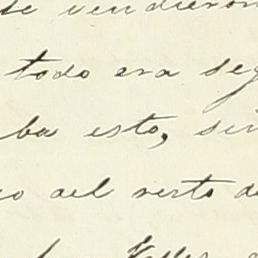 se vendieron
todo era seg
ba esto, sin
co del resto de